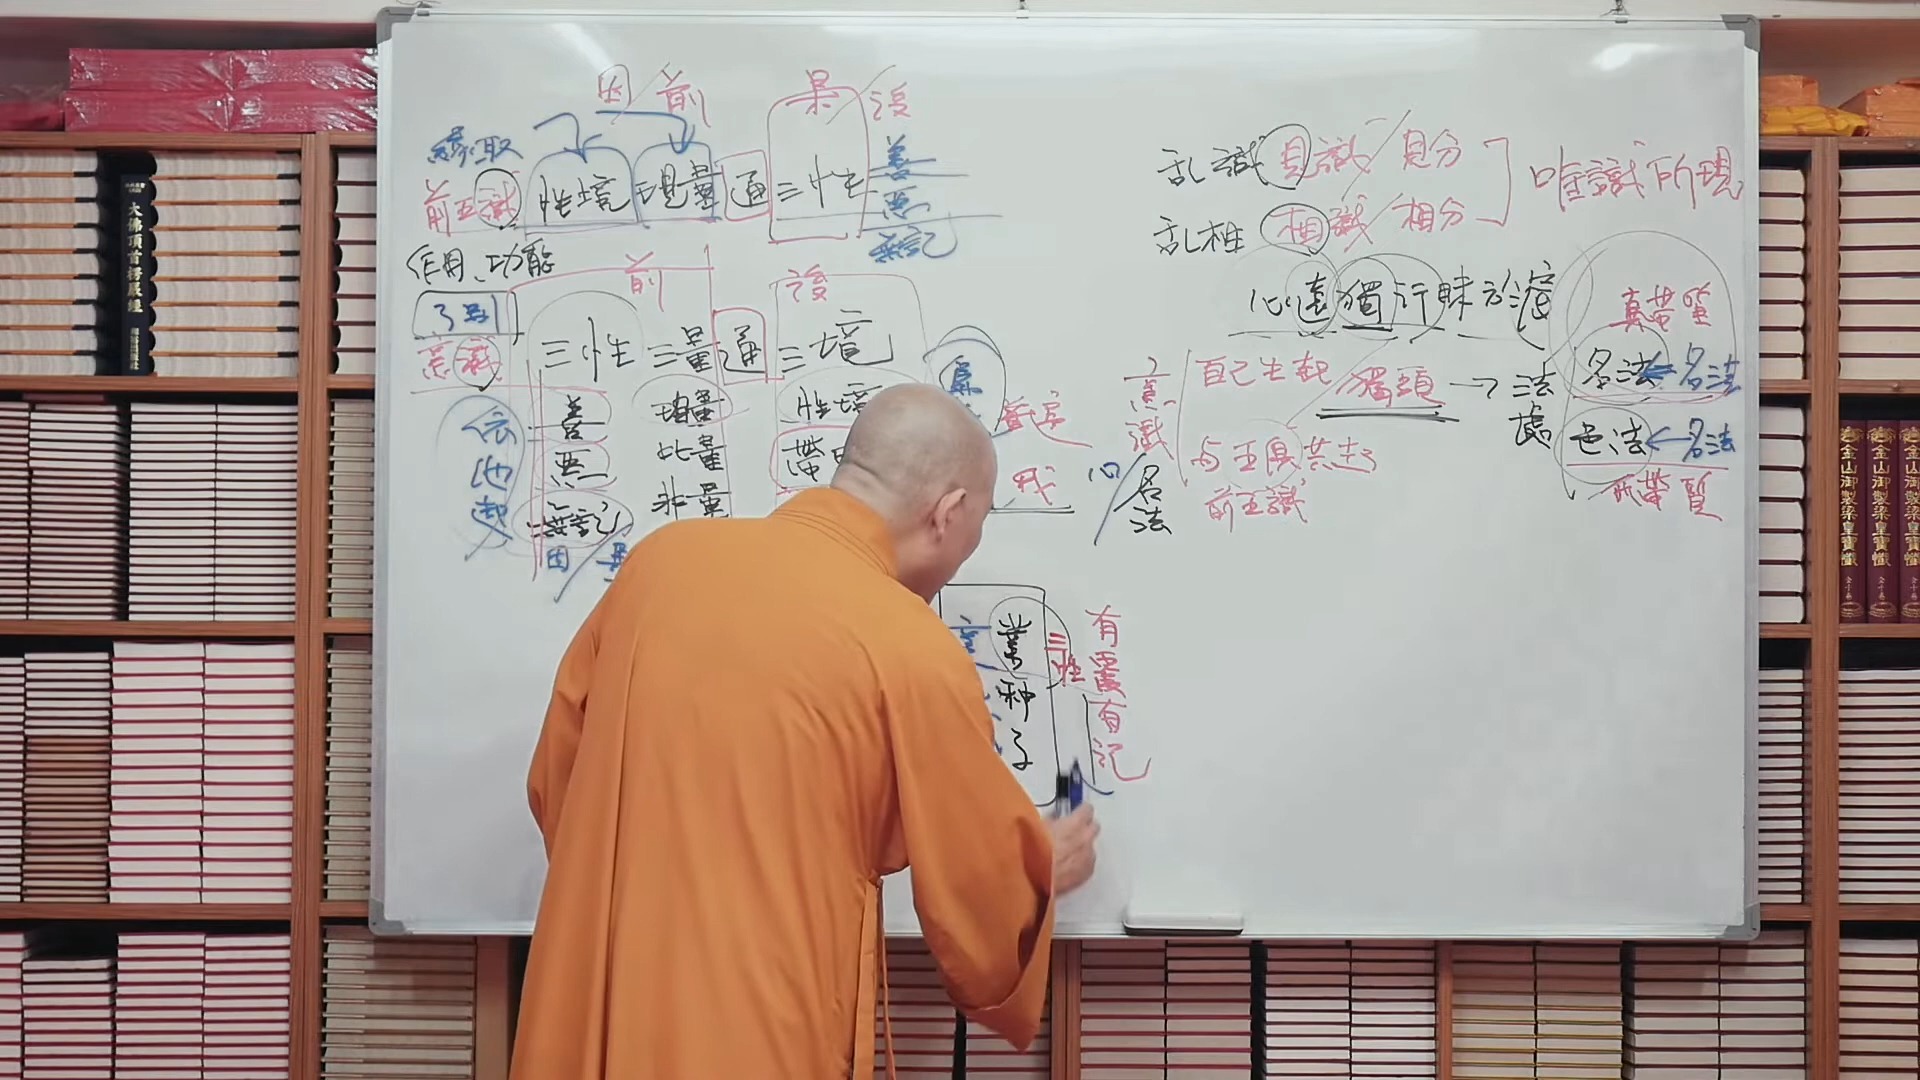 因/前 果/後
緣取
前五識 性境 現量 通 三性
善
惡
無記
作用、功能
前 後
了別
意識 三性 三量 通 三境
善 現量 性境
惡 比量 帶
無記 非量
因/果
依他起
乱識 見識/見分
乱相 相識/相分
唯識所現
心遠獨行昧於渡
真帶質
意識 自己生起 獨頭→法處
名法←名法
色法←名法
与五俱共起
前五識
所帶質
心/名法
業種子
三性
有覆有記
大佛頂首楞嚴經
金山御製梁皇寶懺
金山御製梁皇寶懺